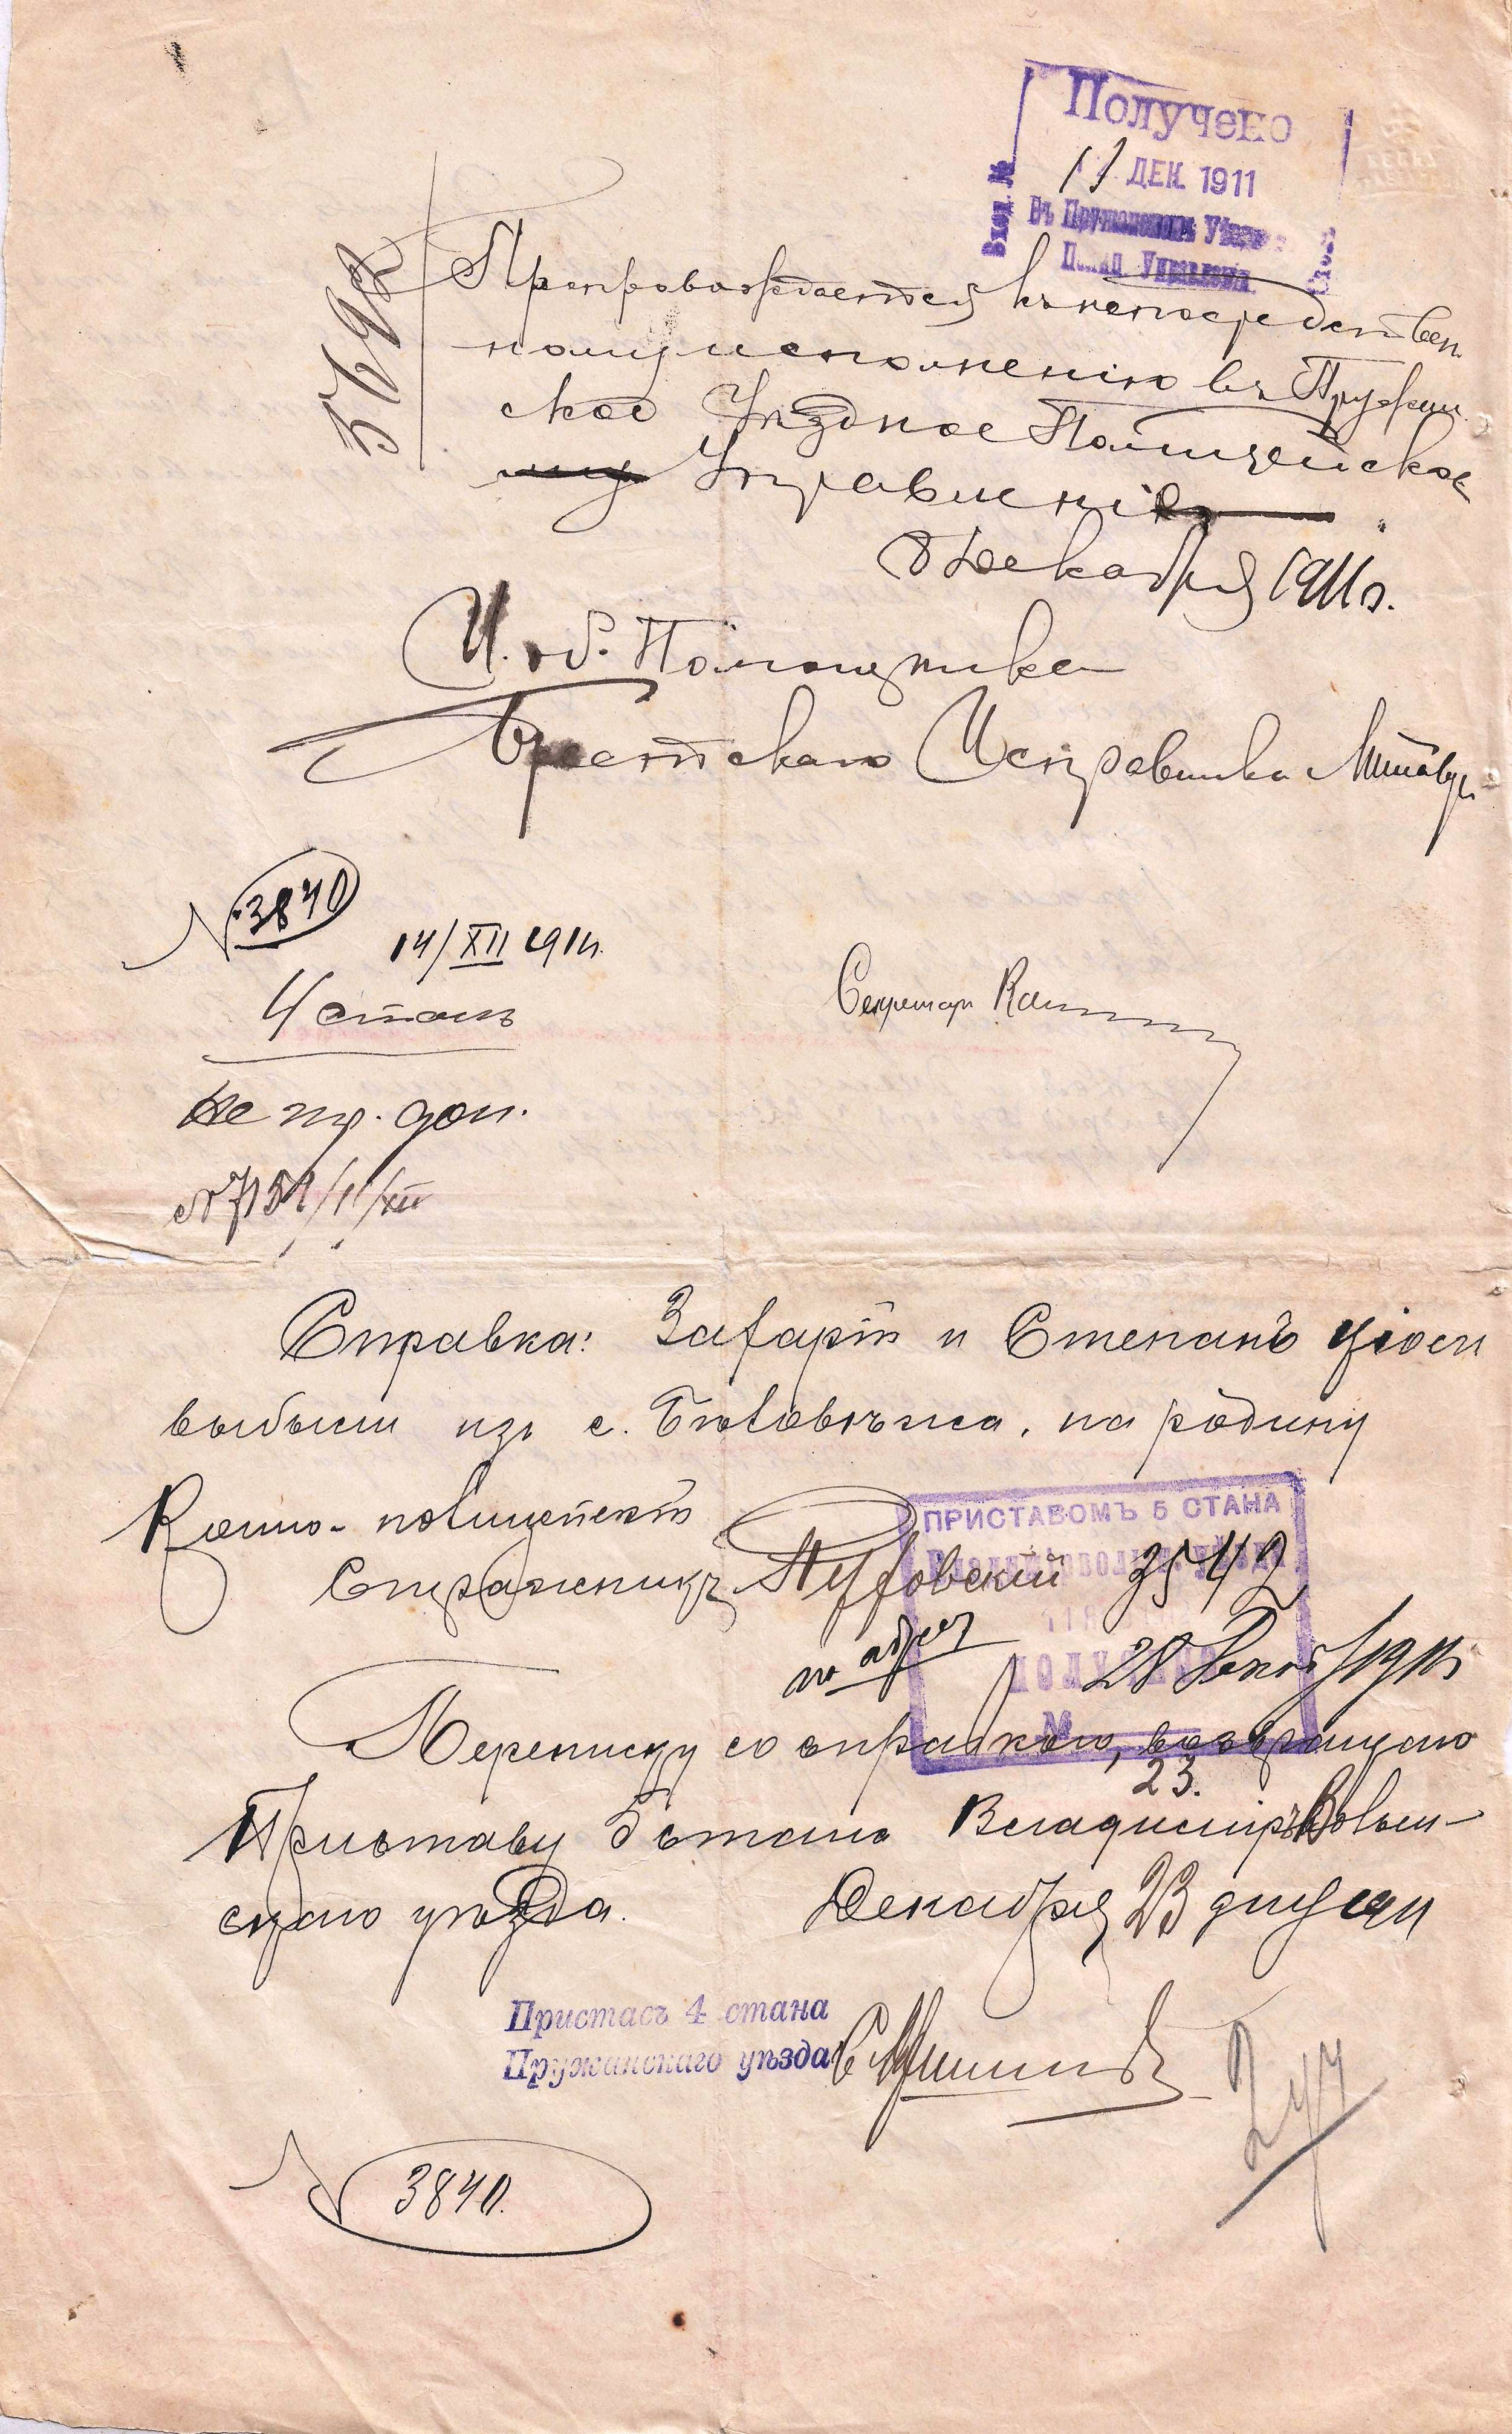 Получено
11 ДЕК. 1911
Вход. №
Въ Пружанскомъ Уѣздн.
Полиц. Управлен.
Препровождается къ непосредствен
ному исполненію въ Пружан
ское Уѣздное Полицейское
Управленіе
8 Декабря 1911 г.
И. об. Помощника
Брестскаго Исправника
№ 3840
14/XII 1911.
4 станъ
Секретарь
не пр. доп.
Справка: Захарій и Степанъ
выбыли изъ с. Бѣловѣжа, на родину
Конно-полицейскій
Стражникъ
ПРИСТАВОМЪ 5 СТАНА
3542
28 1911
ПОЛУЧЕНО
№
Переписку со справкою, возвращаю
23.
Приставу 5 стана Владиміръ Волын-
скаго уѣзда. Декабря 23 дня 1911
Приставъ 4 стана
Пружанскаго уѣзда
№ 3840.